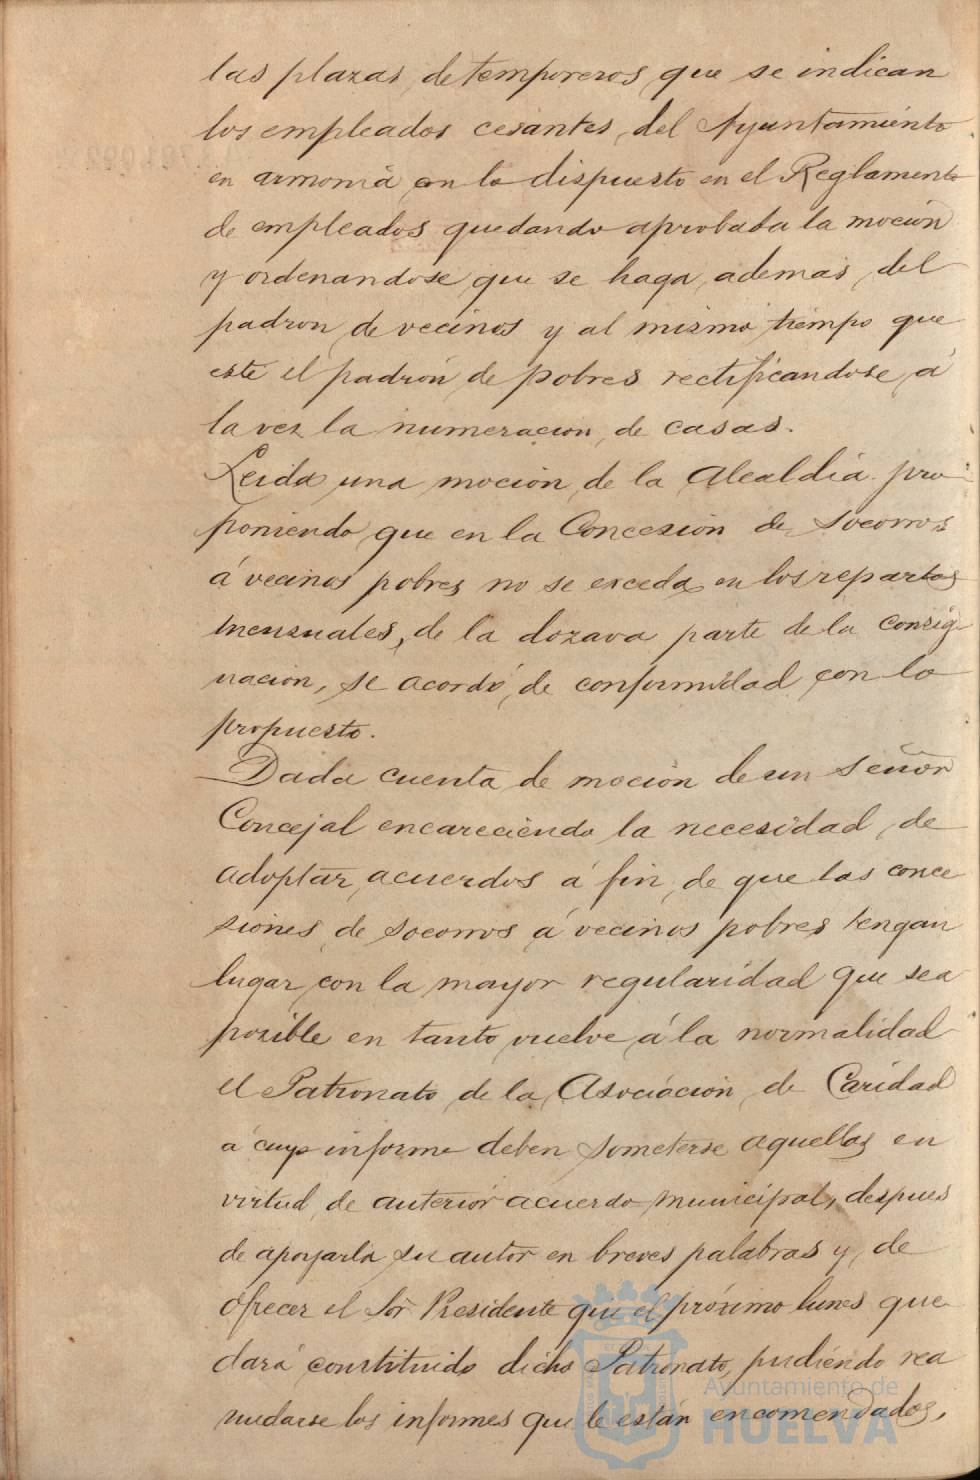 las plazas de temporeros que se indican
los empleados cesantes del Ayuntamiento
en armonia con lo dispuesto en el Reglamento
de empleados quedando aprobada la moción
y ordenandose que se haga, ademas, del
padron de vecinos y al mismo tiempo que
este el padrón de pobres rectificandose á
la vez la numeracion de casas.
Leida una moción de la Alcaldia pro
poniendo que en la Concesión de Socorros
á vecinos pobres no se exceda en los repartos
mensuales, de la dozava parte de la consig
nación, se acordó de conformidad con lo
propuesto.
Dada cuenta de moción de un Señor
Concejal encareciendo la necesidad de
adoptar acuerdos á fin de que las conce
siones de socorros á vecinos pobres tengan
lugar con la mayor regularidad que sea
posible en tanto vuelve á la normalidad
el Patronato de la Asociación de Caridad
á cuyo informe deben someterse aquellas en
virtud de anterior acuerdo municipal, despues
de apoyarla su autor en breves palabras y de
ofrecer el Sor Presidente que el próximo lunes que
dará constituido dicho Patronato, pudiendo rea
nudarse los informes que le están encomendados,
Ayuntamiento de
HUELVA